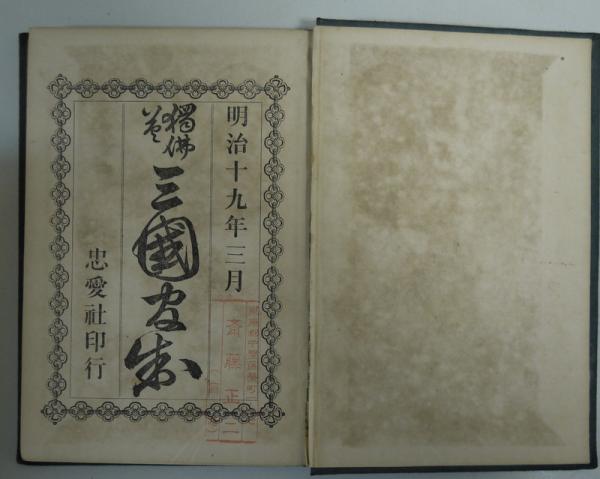 明治十九年三月
獨佛
英
三國官制
忠愛社印行
斎藤正二